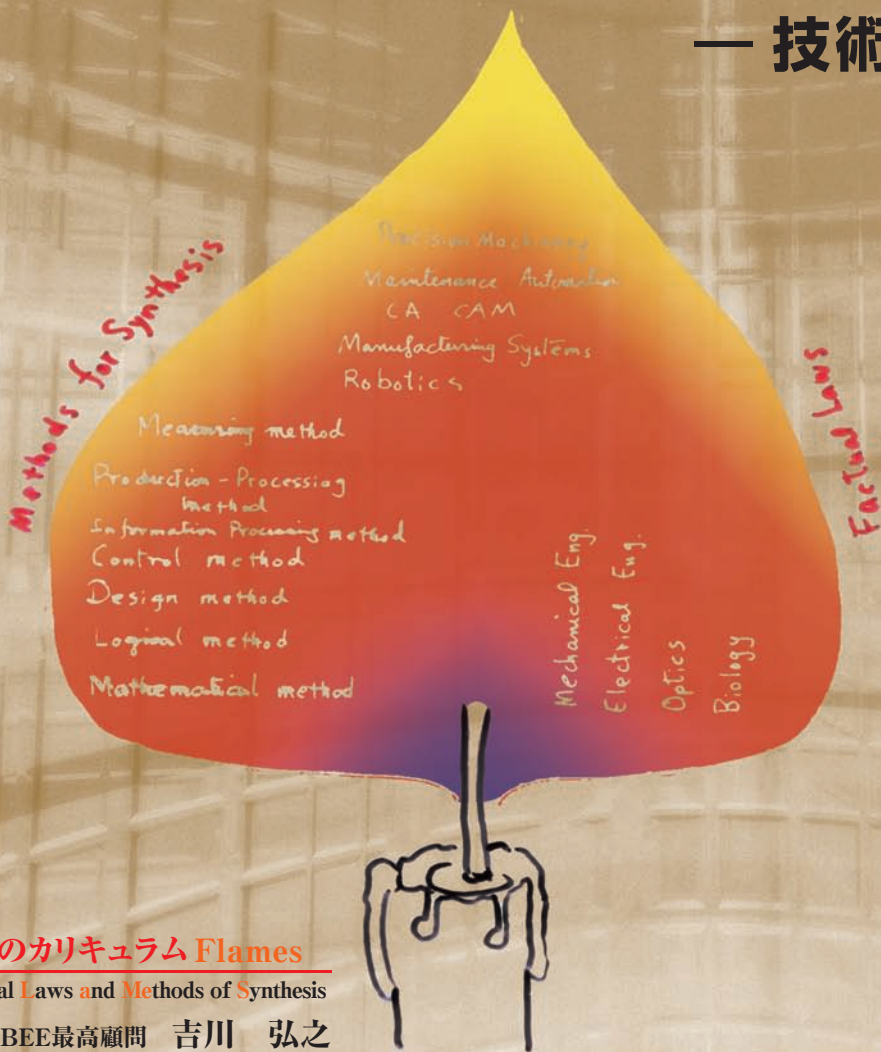 — 技術
Methods for Synthesis
Factual Laws
Precision Machinery
Maintenance Automation
CA CAM
Manufacturing Systems
Robotics
Measuring method
Production - Processing
method
Information Processing method
Control method
Design method
Logical method
Mathematical method
Mechanical Eng.
Electrical Eng.
Optics
Biology
のカリキュラム Flames
al Laws and Methods of Synthesis
BEE最高顧問 吉川 弘之